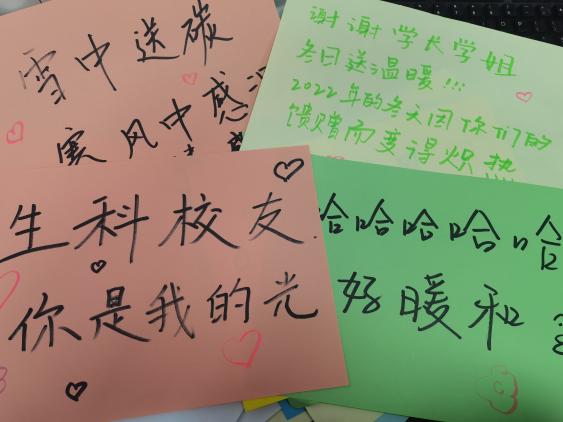 雪中送碳
寒风中感
谢谢学长学姐
冬日送温暖!!!
2022年的冬天因你们的
馈赠而变得炽热
生科校友
你是我的光
哈哈哈哈哈
好暖和